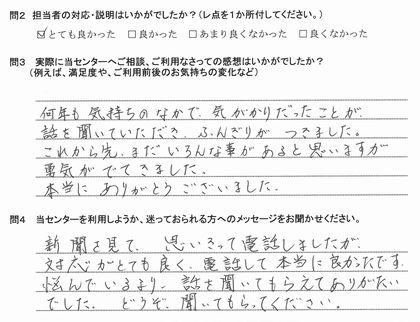 問2 担当者の対応・説明はいかがでしたか？(レ点を1か所付してください。)
☑とても良かった □良かった □あまり良くなかった □良くなかった
問3 実際に当センターへご相談、ご利用なさっての感想はいかがでしたか？
(例えば、満足度や、ご利用前後のお気持ちの変化など)
何年も気持ちのなかで、気がかりだったことが、
話を聞いていただき、ふんぎりが つきました。
これから先、まだいろんな事があると思いますが
勇気がでてきました。
本当に ありがとうございました。
問4 当センターを利用しようか、迷っておられる方へのメッセージをお聞かせください。
新聞を見て、思いきって電話しましたが、
対応がとても良く、電話して本当に良かったです。
悩んでいるより、話を聞いてもらえてありがたい
でした。 どうぞ、聞いてもらってください。